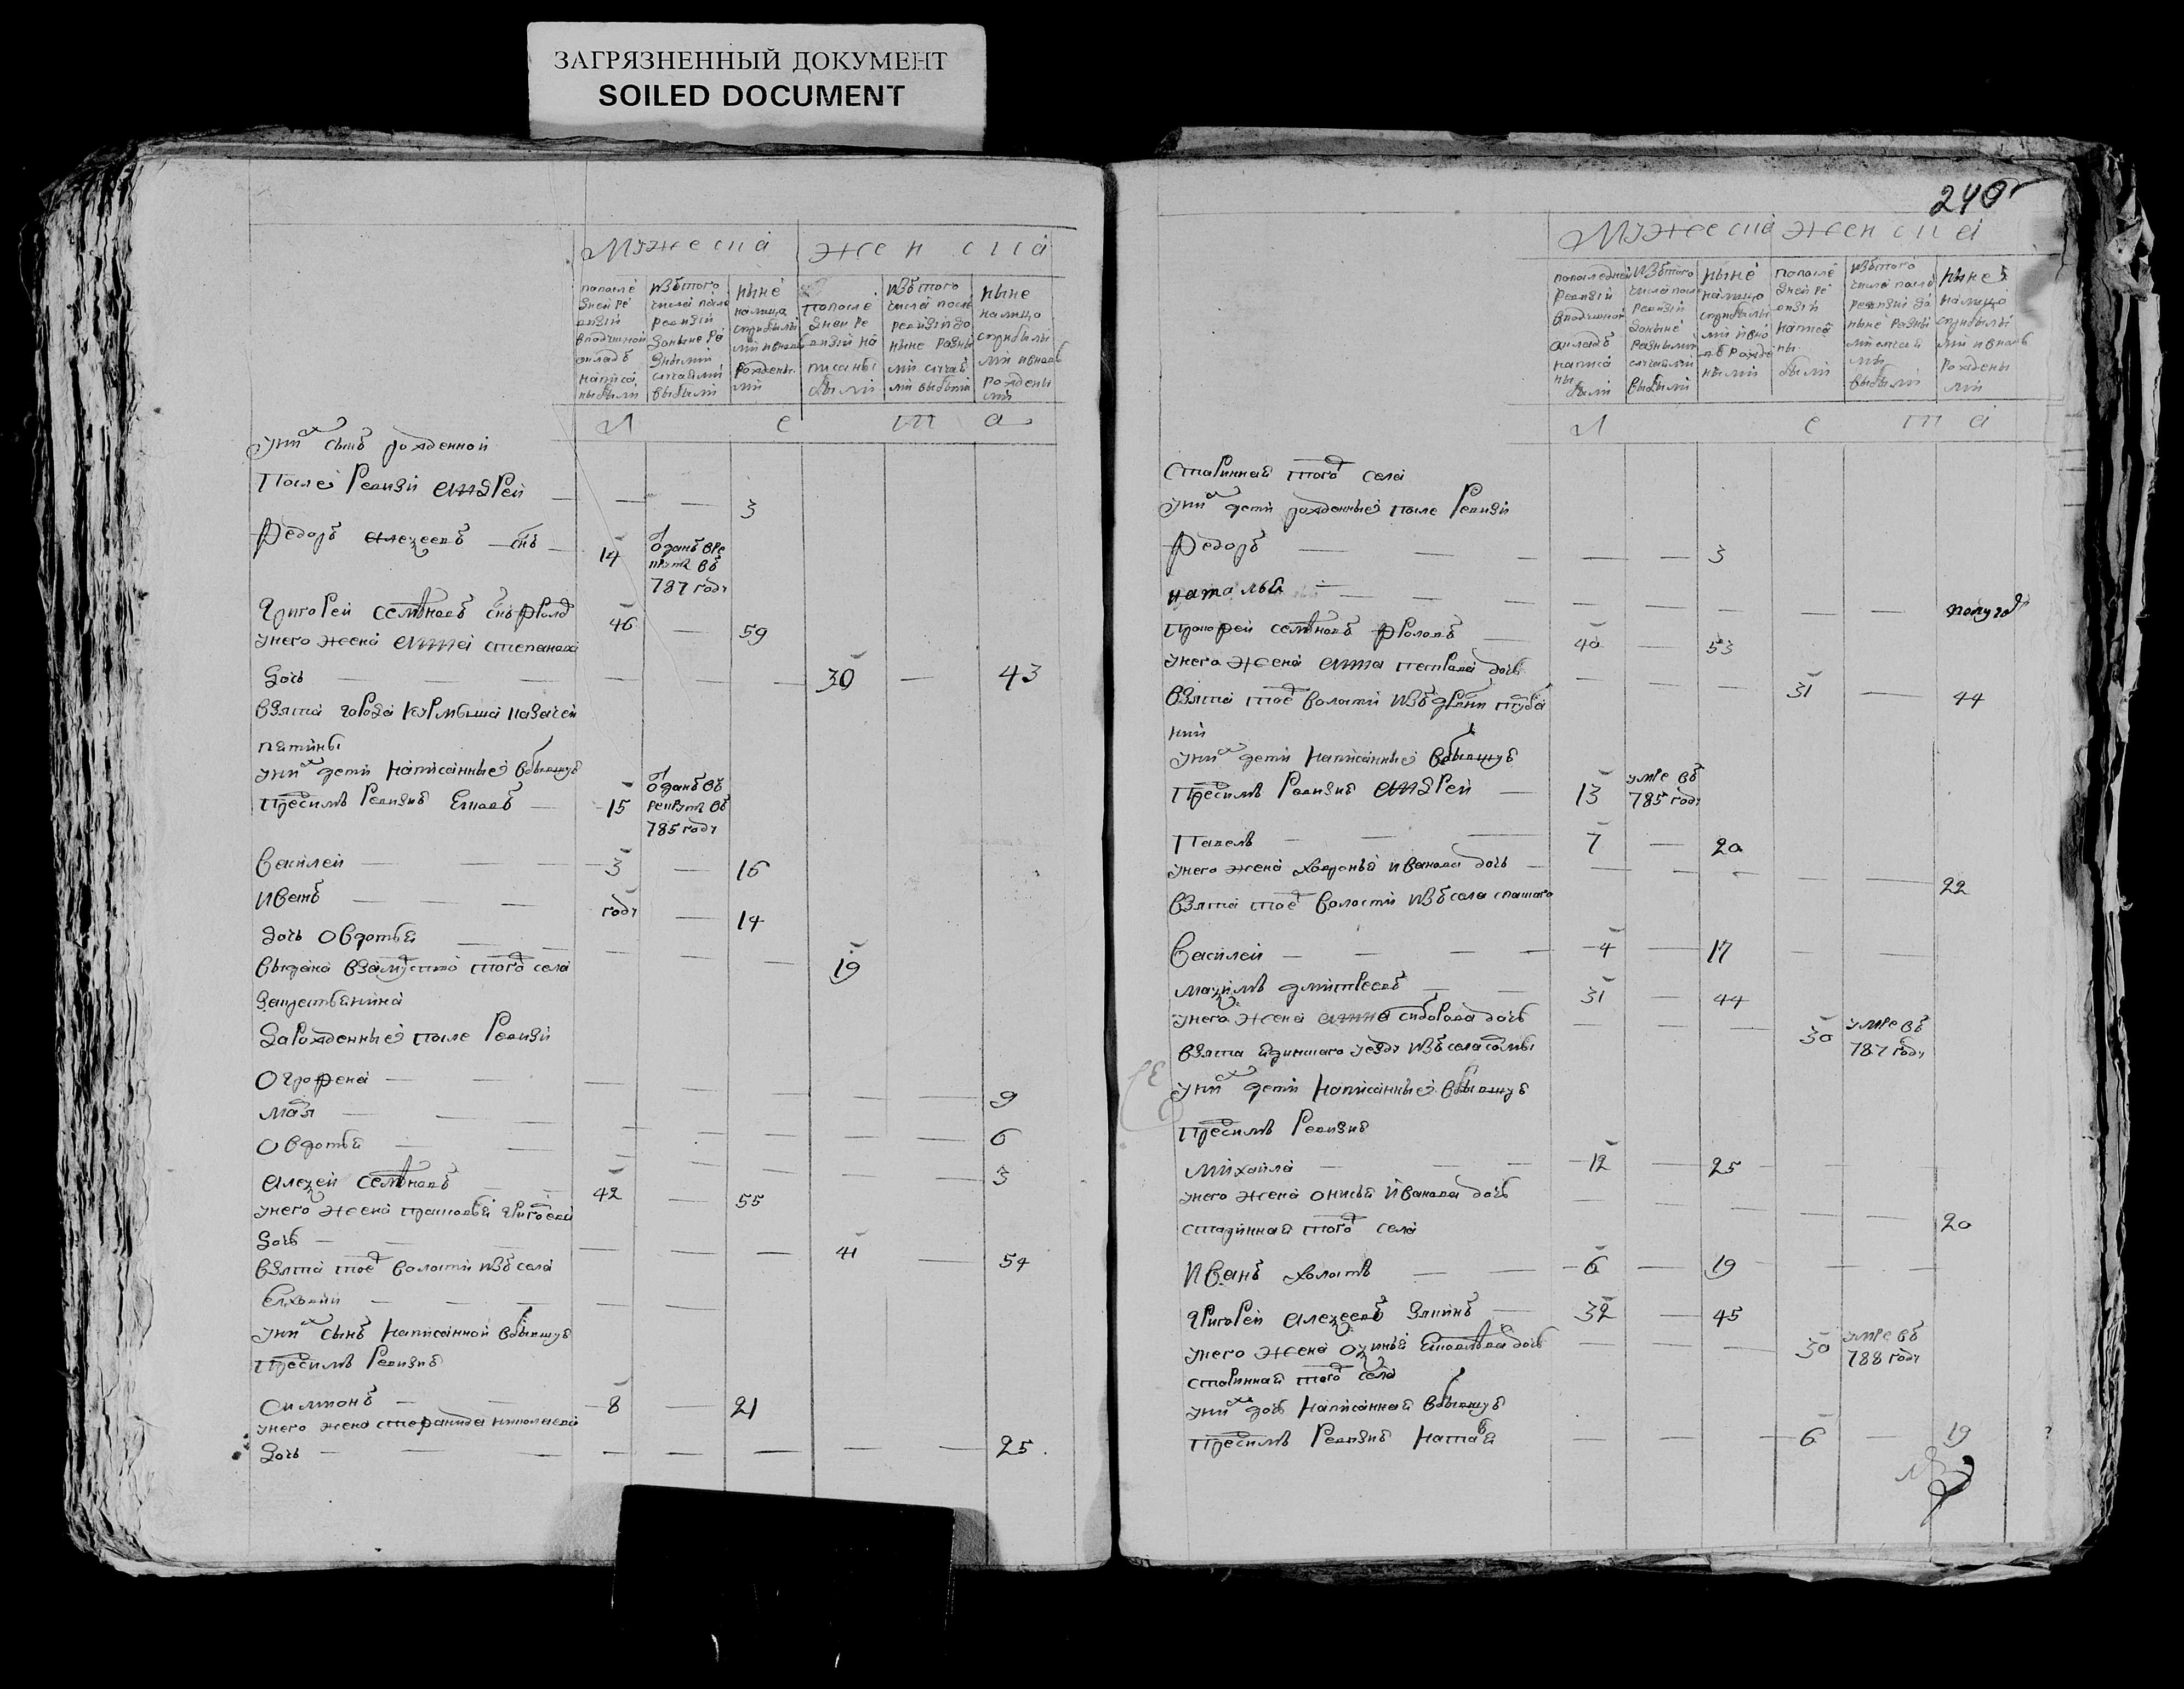 ЗАГРЯЗНЕННЫЙ ДОКУМЕНТ
SOILED DOCUMENT
Мужеска женска
попосле
дней ре
визии
вподушной
окладъ
написа
ны были
изътого
числа посл
ревизии
доныне ра
зными
случаями
выбыли
ныне
налицо
сприбылы
ми ивновь
рожденны
ми
попосле
дней ре
визии на
писаны
были
изътого
числа после
ревизии до
ныне разны
ми случая
ми выбыли
ныне
налицо
сприбылы
ми ивновь
рожденны
ми
л е т а
уних сынъ рожденной
После Ревизии андрей 3
Федоръ алексеевъ снъ 14 отданъ вре
круты въ
787 году
Григорей семеновъ снъ фролов 46 59
унего жена анна степанова
дочь 30 43
взята города курмыша казачей
уних дети написанные вбывшую
предсимъ Ревизию 15 отданъ въ
рекруты въ
785 году
василей 3 16
иванъ году 14
дочь овдотья 19
выдана взамужство тогож села
зарожденные после Ревизии
Огрофена 9
6
Овдотья 3
алексей семеновъ 42 55
унего жена прасковья григорева
дочь 41 54
взята тоеж волости изъ села
уних сынъ написанной вбывшую
предсимъ Ревизию
8 21
унего жена стефанида николаева
дочь 25
240
Мужеска женска
попоследней
ревизии
вподушной
окладъ
написа
ны
были
изътого
числа после
ревизии
доныне
разными
случаями
выбыли
ныне
налицо
сприбылы
ми ивно
въ рожде
ными
попосле
дней ре
визии
написа
ны
были
изътого
числа после
ревизии до
ныне разны
ми случая
ми
выбыли
ныне
налицо
сприбылы
ми ивновь
рожденны
ми
л е т а
старинная тогож села
уних дети рожденные после Ревизии
Федоръ 3
наталья полугод
Прокофей семеновъ фроловъ 40 53
унего жена анна петрова дочь 31 44
взята тоеж волости изъ дрвни
уних дети написанные вбывшую
предсимъ Ревизию андрей 13 умре въ
785 году
Павелъ 7 20
унего жена ховронья иванова дочь 22
взята тоеж волости изъ села спаского
василей 4 17
максимъ дмитреевъ 31 44
унего жена анна сидорова дочь 30 умре въ
787 году
уних дети написанные вбывшую
предсимъ Ревизию
михайла 12 25
унего жена онисья иванова дочь 20
старинная тогож села
иванъ холостъ 6 19
григорей алексеевъ 32 45
унего жена дочь 30 умре въ
788 году
старинная тогож села
уних дочь написанная вбывшую
предсимъ Ревизию наталья 6 19